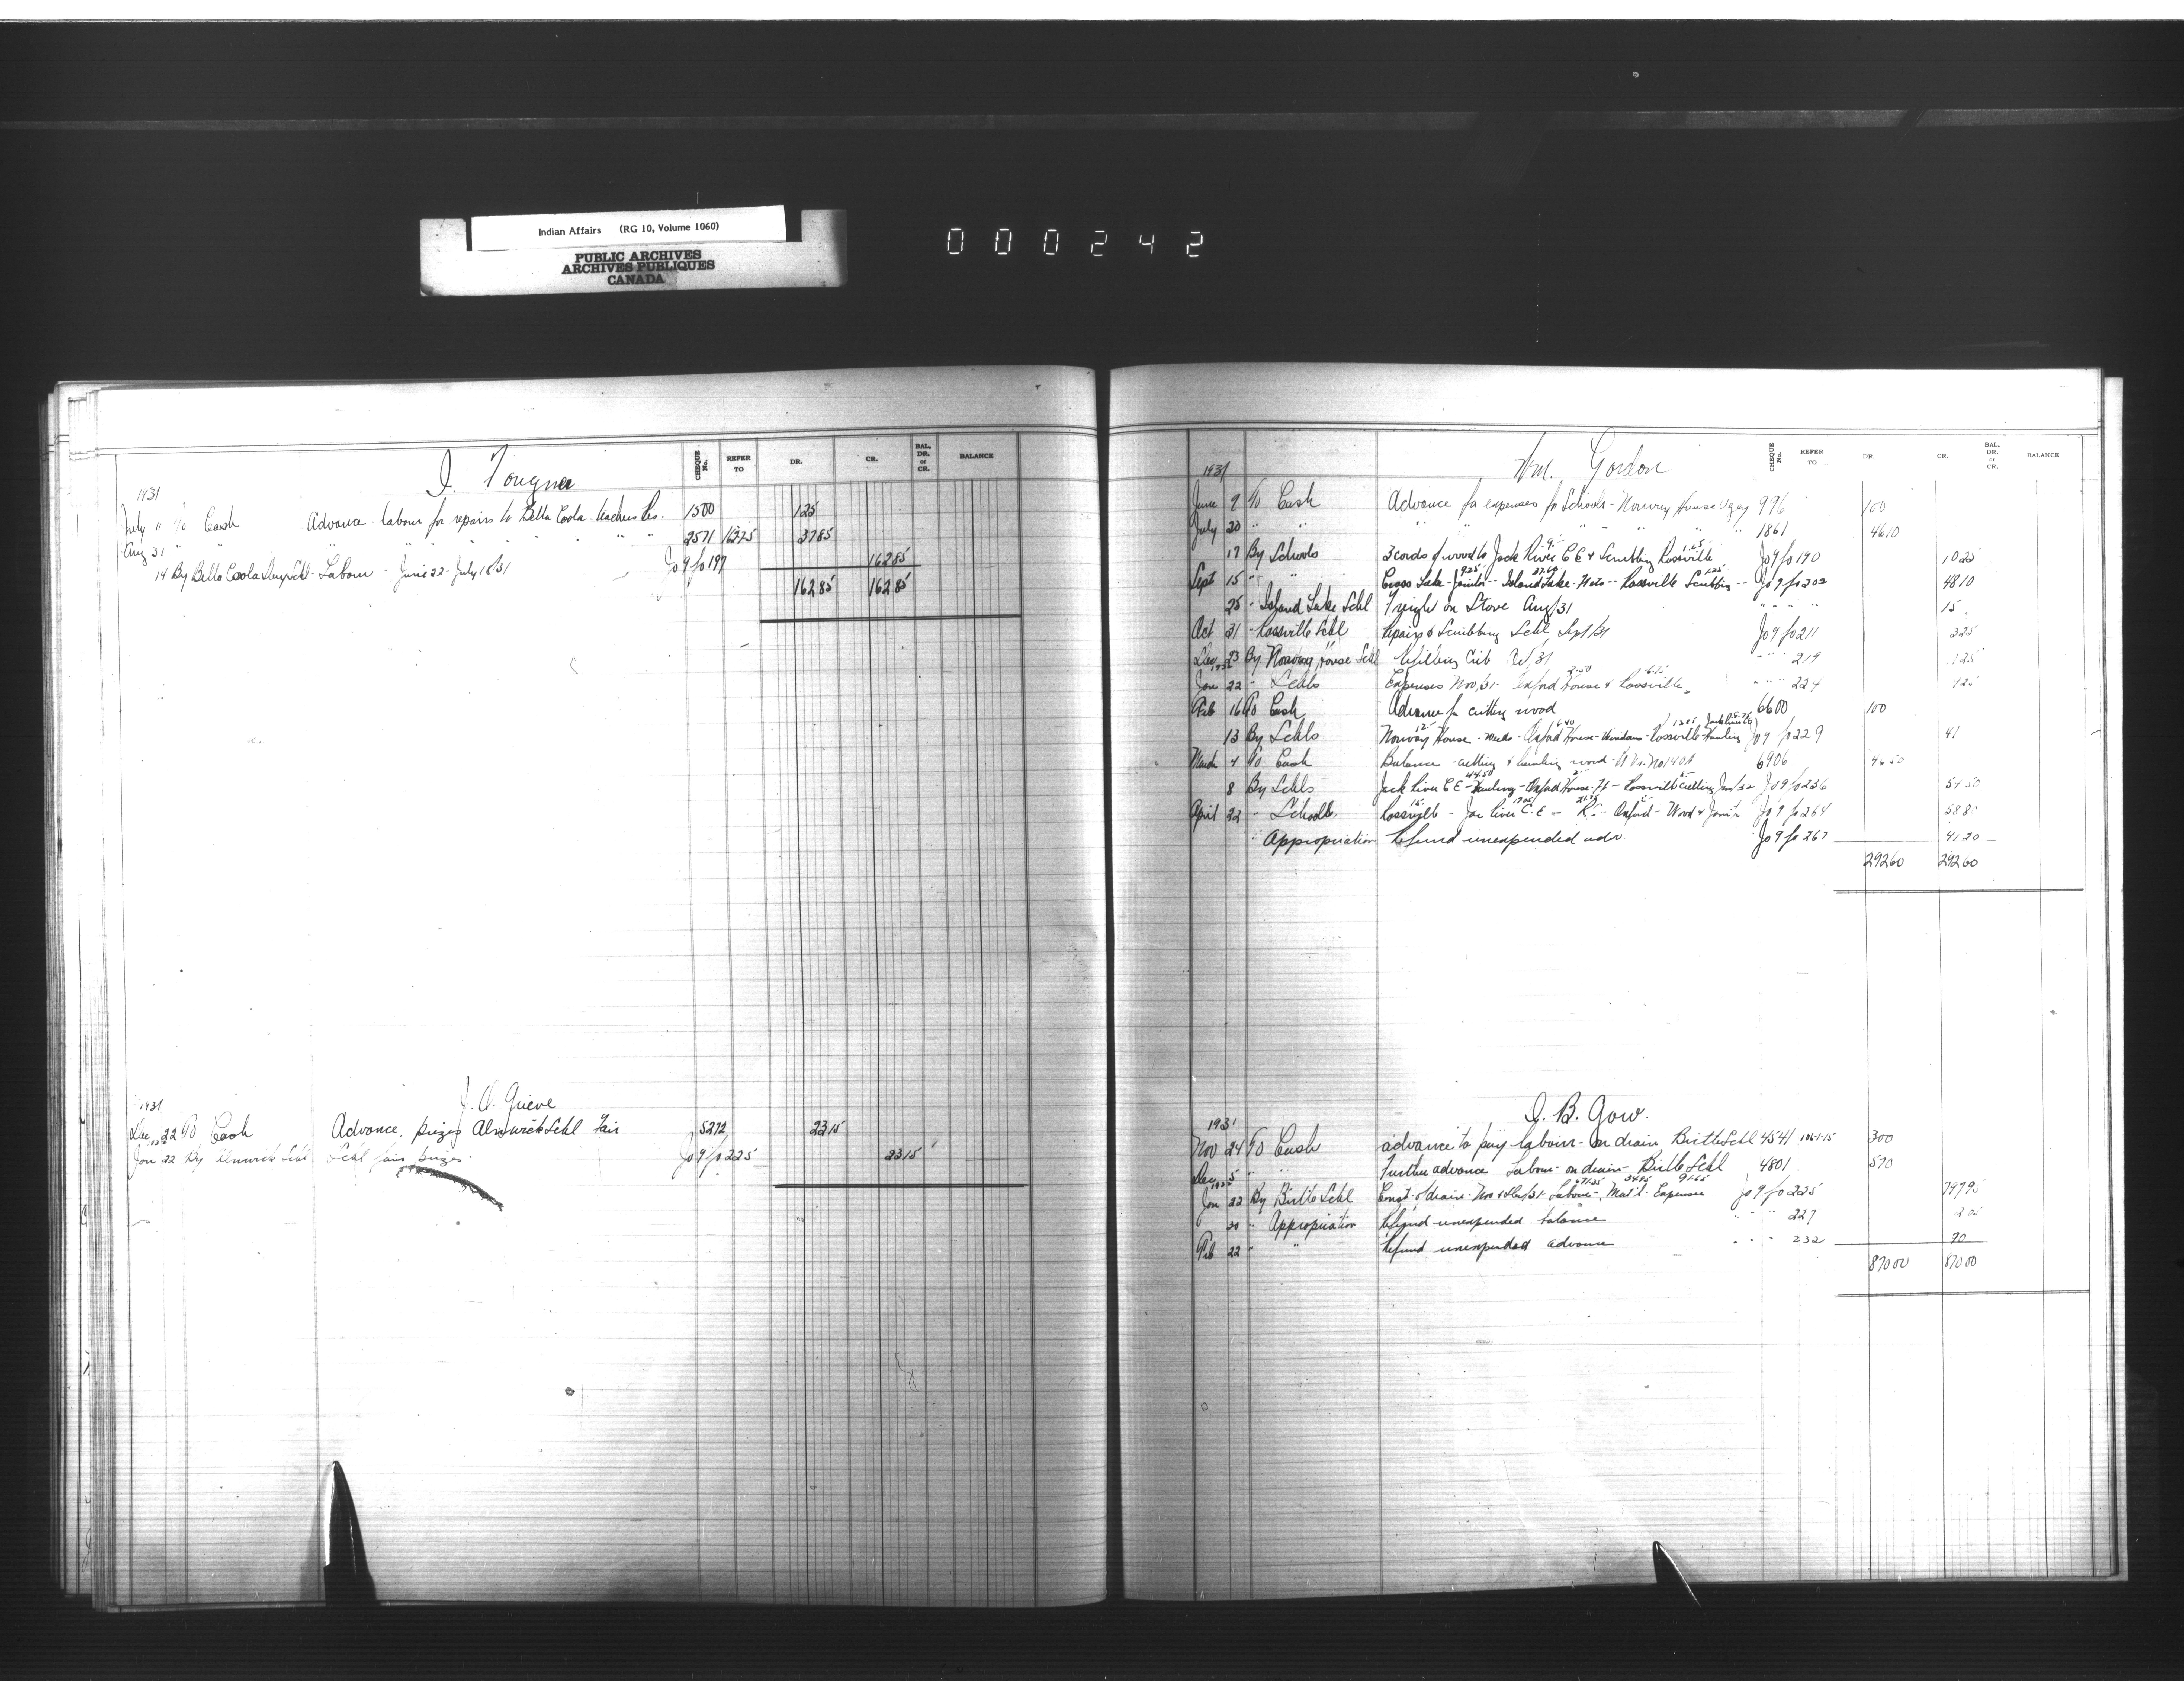 Indian Affairs (RG 10, Volume 1060)
PUBLIC ARCHIVES
ARCHIVES PUBLIQUES
CANADA
000242
CHEQUE No. REFER TO DR. CR. BAL. DR. or CR. BALANCE
1931
July " To Cash Advance - labour for repairs to Bella Coola teachers Res. 1500 125
Aug 31 " " " " " 2571 1625 3785
14 By Bella Coola Day Schl - Labour - June 22 - July 18/31 Jo 9 fo 197 16285
16285 16285
J. A. Grieve
1931
Dec 22 To Cash Advance, prizes Alnwick Schl Fair 5272 2315
1932
Jan 22 By Alnwick Schl Schl fair prizes Jo 9 fo 225 2315
Wm. Gordon
CHEQUE No. REFER TO DR. CR. BAL. DR. or CR. BALANCE
1931
June 9 To Cash Advance for expenses for Schools - Norway House Agcy 996 100
July 20 " " " " " " 1861 4610
17 By Schools 3 cords of wood to Jack River C E & Scrubbing Rossville Jo 9 fo 190 1025
Sept 15 " " Cross Lake - Janitor - Island Lake - - Rossville Scrubbing Jo 9 fo 202 4810
25 - Island Lake Schl Freight on Stove Aug/31 " " " 15
Oct 31 - Rossville Schl Repairs & Scrubbing Schl, Sept/31 Jo 9 fo 211 325
Dec 23 By Norway House Schl Crib Oct/31 " " 219 125
1932
Jan 22 - Schls Expenses Nov/31 Oxford House & Rossville " " 224
Feb 16 To Cash Advance for cutting wood 6600 100
13 By Schls Norway House - - Oxford House - Windows - Rossville Hauling Jo 9 fo 229 41
March 4 To Cash Balance - cutting & hauling wood 6906 4650
8 By Schls Jack River C E - Hauling - Oxford House - - Rossville Cutting Jan/32 Jo 9 fo 236
April 22 - Schools Rossville - Jac River C. E - R.C. Oxford - Wood & Jan'tr Jo 9 fo 264 5880
" Appropriation Refund unexpended adv. Jo 9 fo 267 4120
29260 29260
J. B. Gow.
1931
Nov 24 To Cash advance to pay labour - on drain Birtle Schl 4541 300
Dec 5 " " Further advance Labour - on drain - Birtle Schl 4801 570
1932
Jan 22 By Birtle Schl Const. of drain - Nov & Dec/31 - Labour - Mat'l - Expenses Jo 9 fo 225 79795
" Appropriation Refund unexpended balance " " 227 205
Feb 22 " " Refund unexpended advance " " 232 70
87000 87000